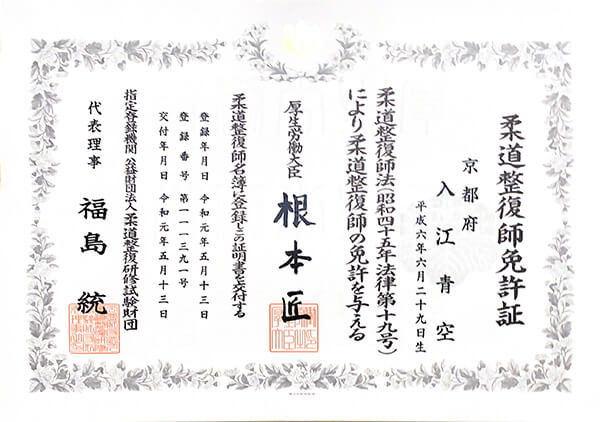 柔道整復師免許証
京都府
入江青空
平成六年六月二十九日生
柔道整復師法(昭和四十五年法律第十九号)
により柔道整復師の免許を与える
厚生労働大臣 根本匠
柔道整復師名簿に登録しこの証明書を交付する
登録年月日 令和元年五月十三日
登録番号 第一一一三九一号
交付年月日 令和元年五月十三日
指定登録機関 公益財団法人 柔道整復研修試験財団
代表理事 福島統